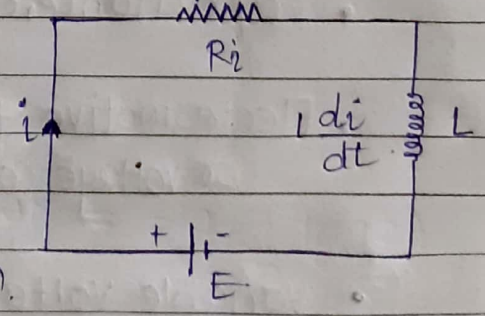 Ri
i
L di/dt
L
+ -
E
).